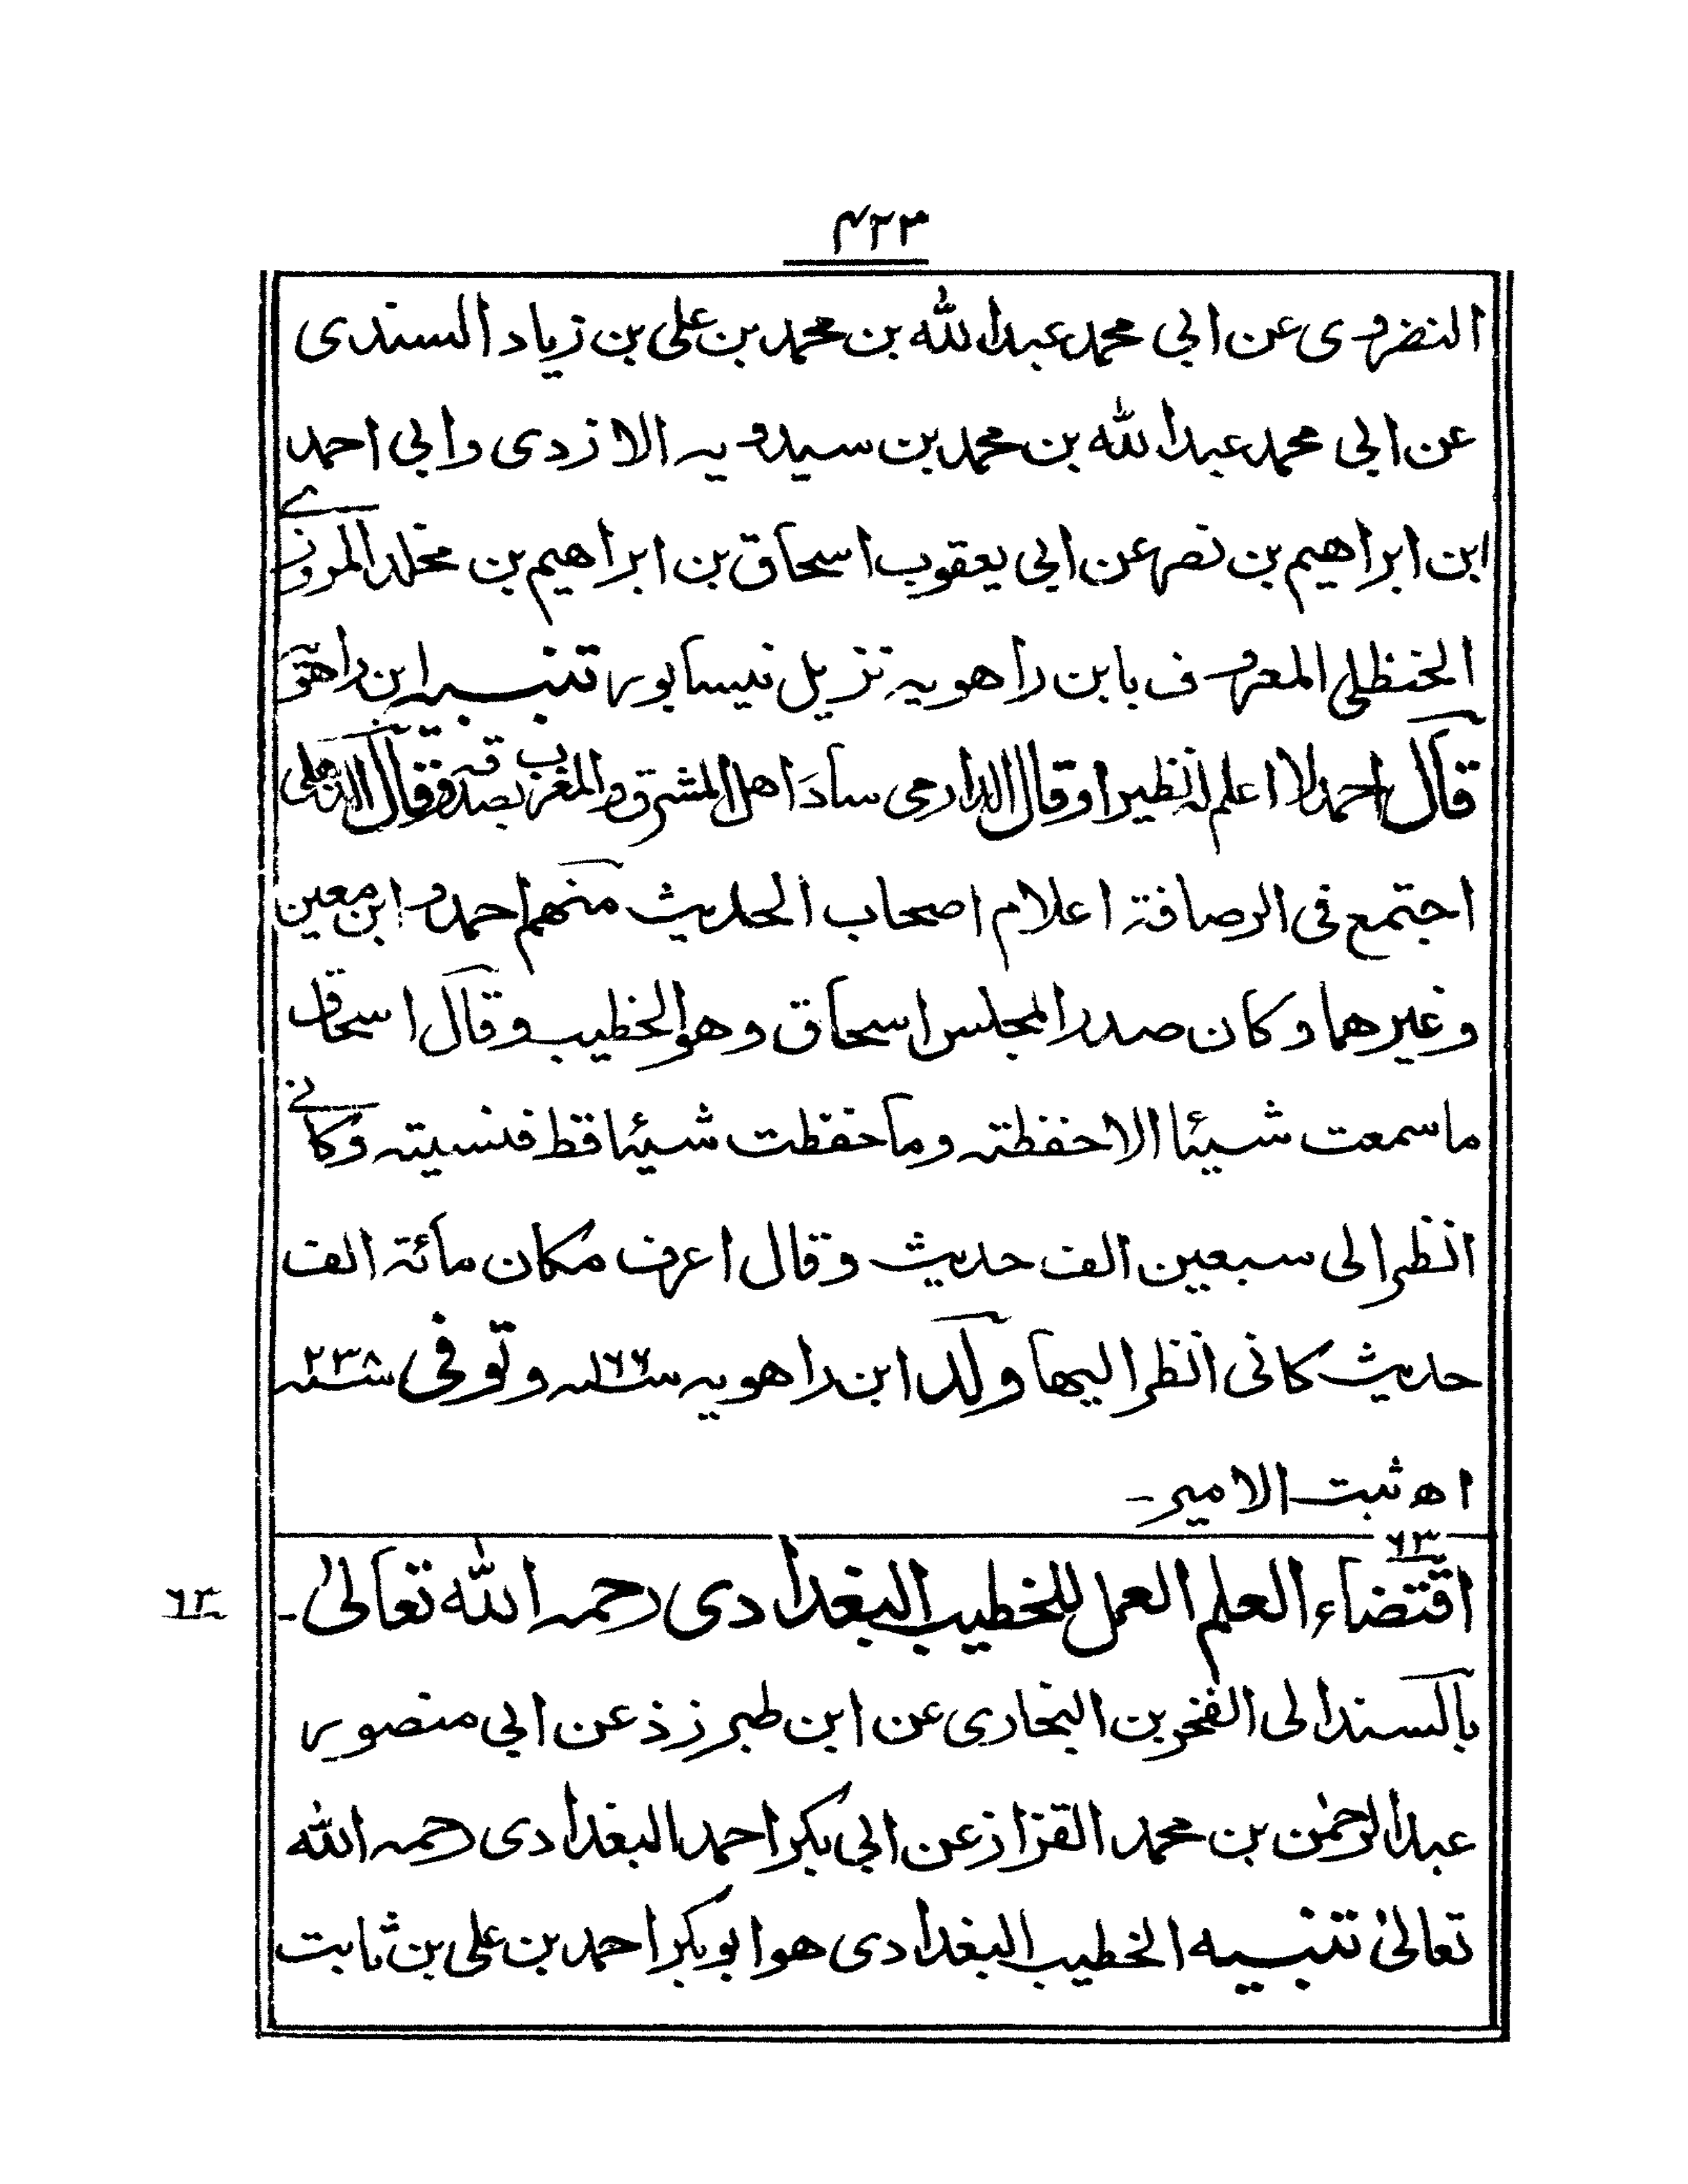 ۴۲۳
النضروى عن ابى محمد عبدالله بن محمد بن على بن زياد السندى
عن ابى محمد عبدالله بن محمد بن سيدويه الازدى وابى احمد
ابن ابراهيم بن نصر عن ابى يعقوب اسحاق بن ابراهيم بن مخلد المروزے
الحنظلى المعروف بابن راهويه نزيل نيسابور تنبيه ابن راهويه
قال احمد لا اعلم له نظيرا وقال الدارمى ساد اهل المشرق والمغرب بصدقه وقال الذهلى
اجتمع فى الرصافة اعلام اصحاب الحديث منهم احمد وابن معين
وغيرهما وكان صدر المجلس اسحاق وهو الخطيب وقال اسحاق
ما سمعت شيئا الا حفظته وما حفظت شيئا قط فنسيته وكانے
انظر الى سبعين الف حديث وقال اعرف مكان مائة الف
حديث كانى انظر اليها ولد ابن راهويه سنه ۱۶۶ وتوفى سنه ۲۳۸
اه ثبت الامير-
۶۳
اقتضاء العلم العمل للخطيب البغدادى رحمه الله تعالىٰ-
۶۳
بالسند الى الفخر بن البخارى عن ابن طبرزذ عن ابى منصور
عبدالرحمٰن بن محمد القزاز عن ابى بكر احمد البغدادى رحمه الله
تعالىٰ تنبيه الخطيب البغدادى هو ابو بكر احمد بن على بن ثابت